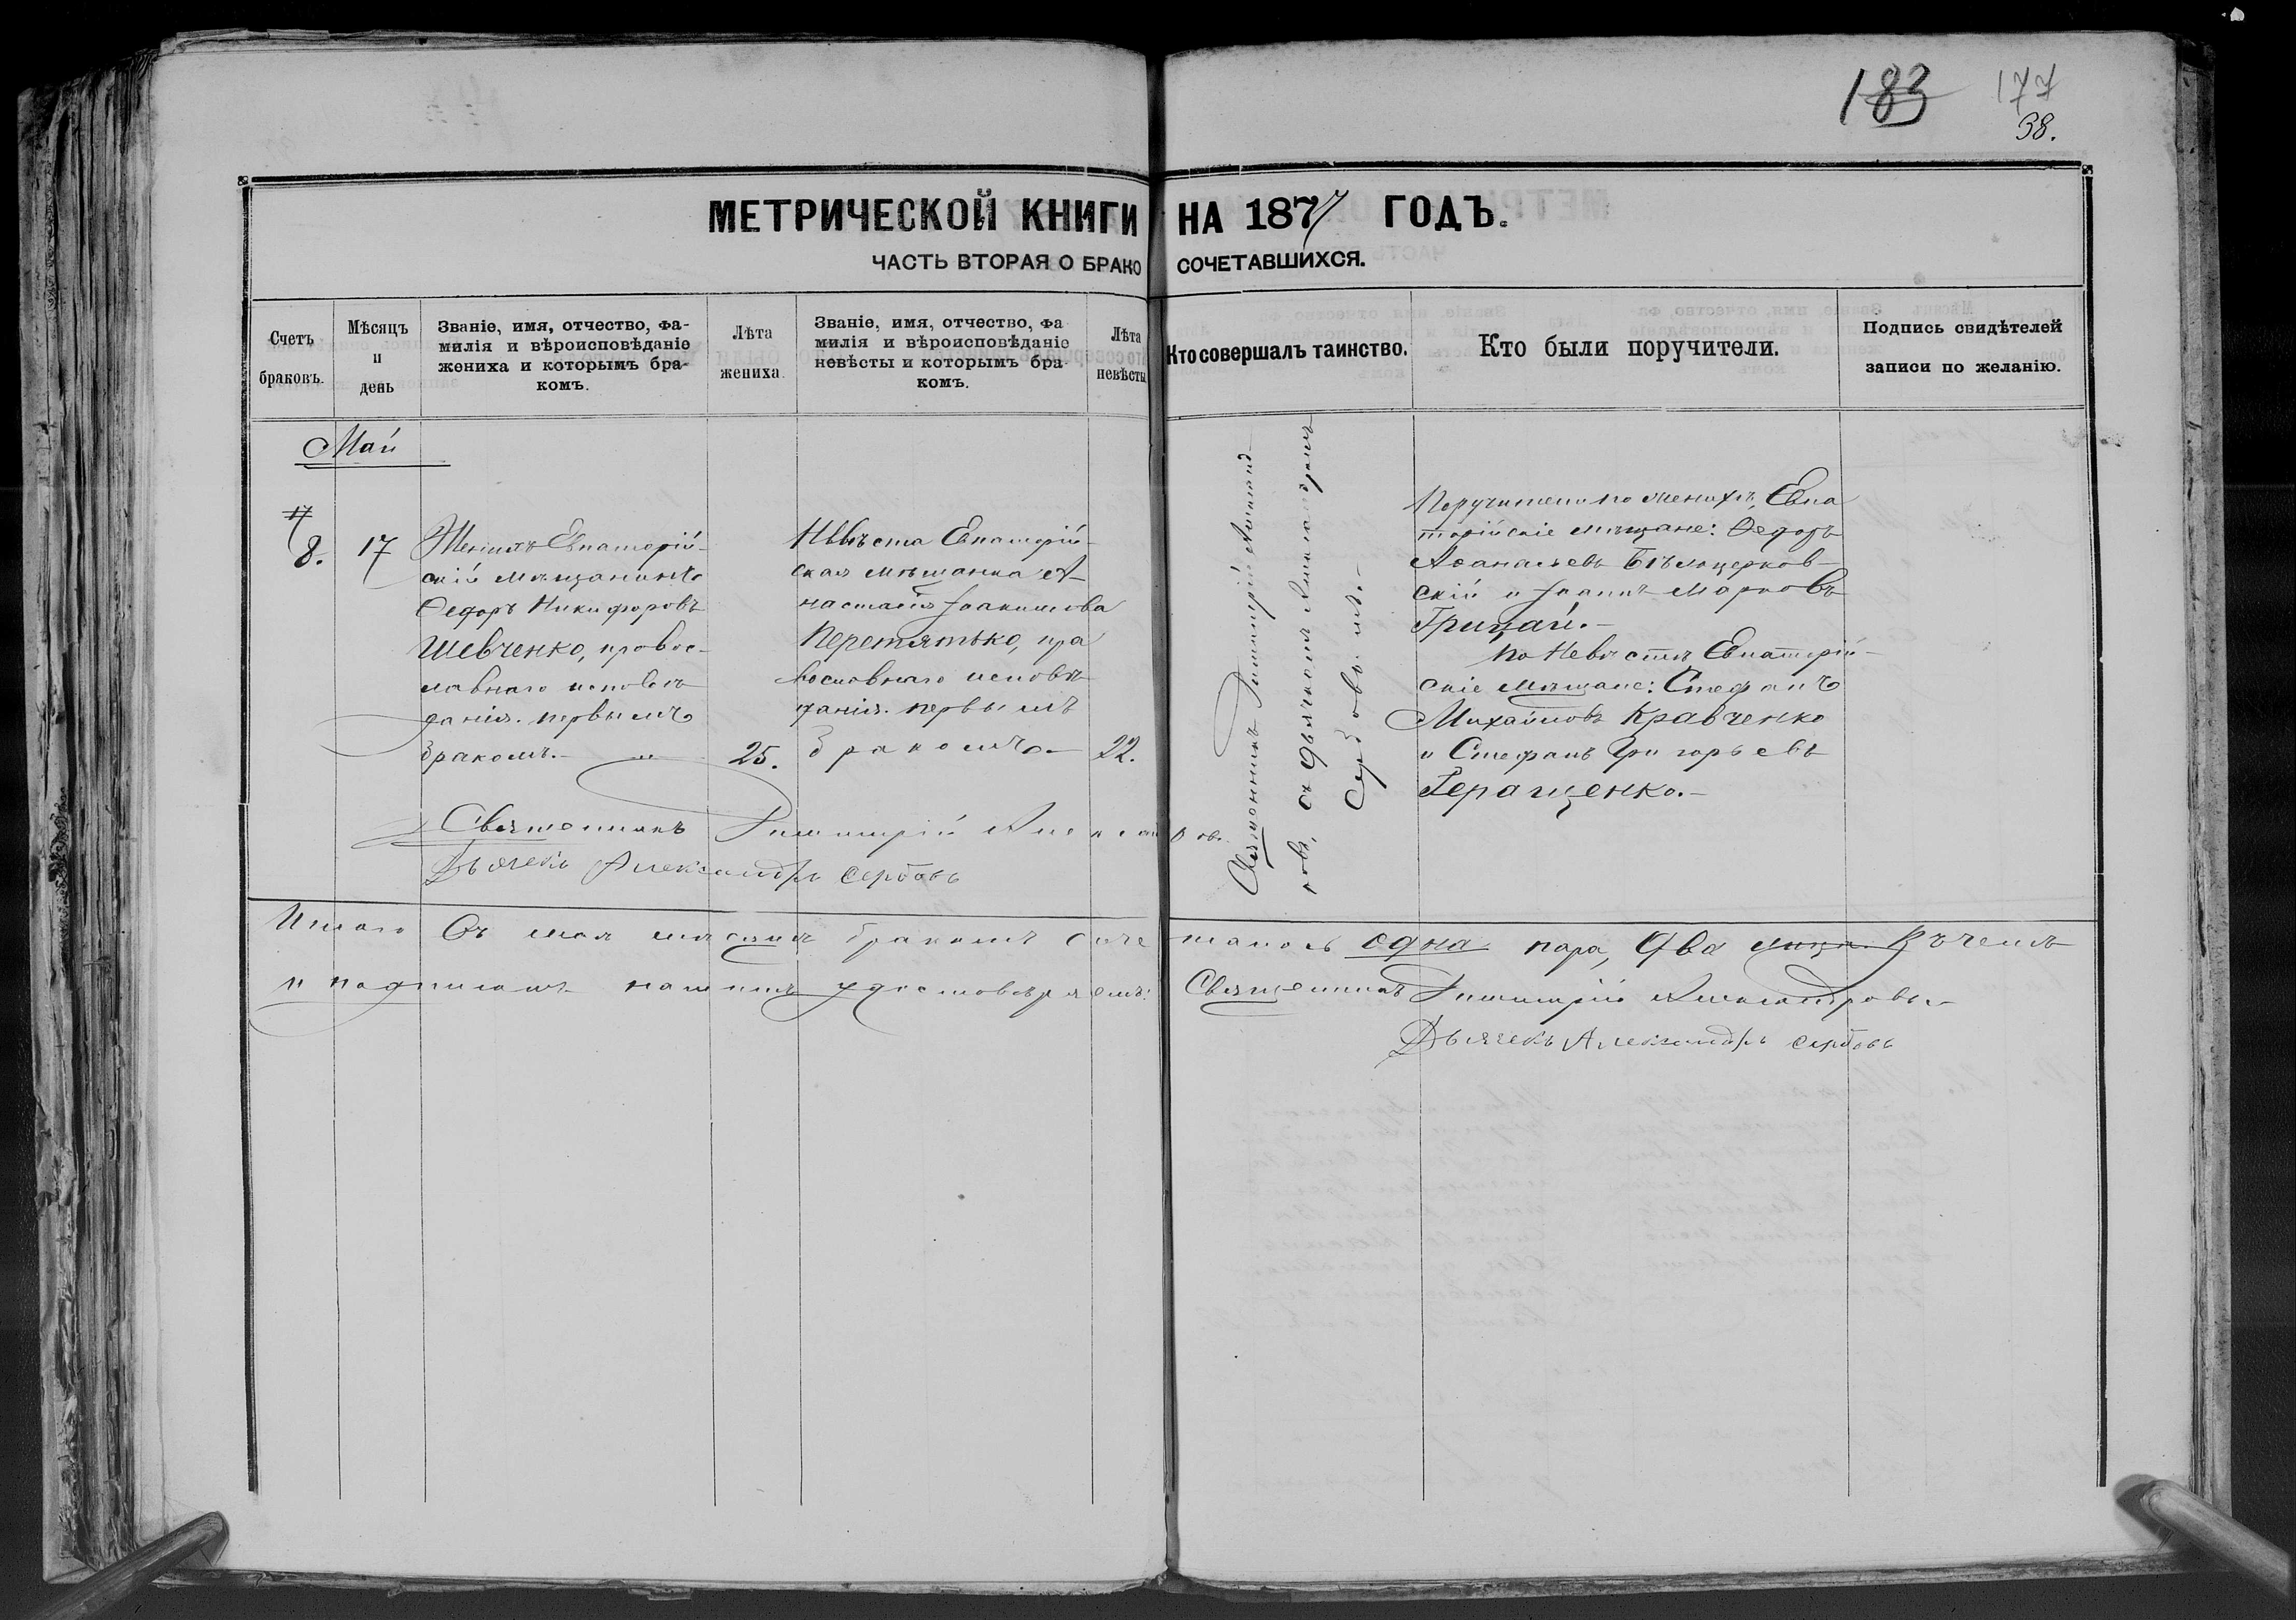 183 177
38.
МЕТРИЧЕСКОЙ КНИГИ НА 1877 ГОДЪ.
ЧАСТЬ ВТОРАЯ О БРАКО СОЧЕТАВШИХСЯ.
Счетъ
браковъ.
Мѣсяцъ
и
день
Званіе, имя, отчество, фа-
милія и вѣроисповѣданіе
жениха и которымъ бра-
комъ.
Лѣта
жениха.
Званіе, имя, отчество, фа
милія и вѣроисповѣданіе
невѣсты и которымъ бра
комъ.
Лѣта
невѣсты
Кто совершалъ таинство.
Кто были поручители.
Подпись свидѣтелей
записи по желанію.
Май
8.
17
Женихъ Евпаторій-
скій мѣщанинъ
Ѳедоръ Никифоровъ
Шевченко, правос-
лавнаго исповѣ
данія. первымъ
бракомъ.-
25.
Невѣста Евпаторій-
ская мѣщанка А-
настасія Іоакимова
Перетятько, пра
вославнаго исповѣ
данія. первымъ
бракомъ.-
22.
Священникъ Димитрій Александ-
ровъ, съ дьячкомъ Александромъ
Сербовымъ.-
Поручители по женихѣ, Евпа
торійскіе мѣщане: Ѳедоръ
Аѳанасьевъ Бѣлоцерков-
скій и Іоаннъ Марковъ
Грицай.-
по Невѣстѣ Евпаторій-
скіе мѣщане: Стефанъ
Михайловъ Кравченко
и Стефанъ Григорьевъ
Геращенко.-
Священникъ Димитрій Александровъ.
Дьячекъ Александръ Сербовъ
Итого Въ маѣ мѣсяцѣ бракомъ соче талось одна пара, Два лица. Въ чемъ
и подписомъ нашимъ удостовѣряемъ: Священникъ Димитрій Александровъ.-
Дьячекъ Александръ Сербовъ